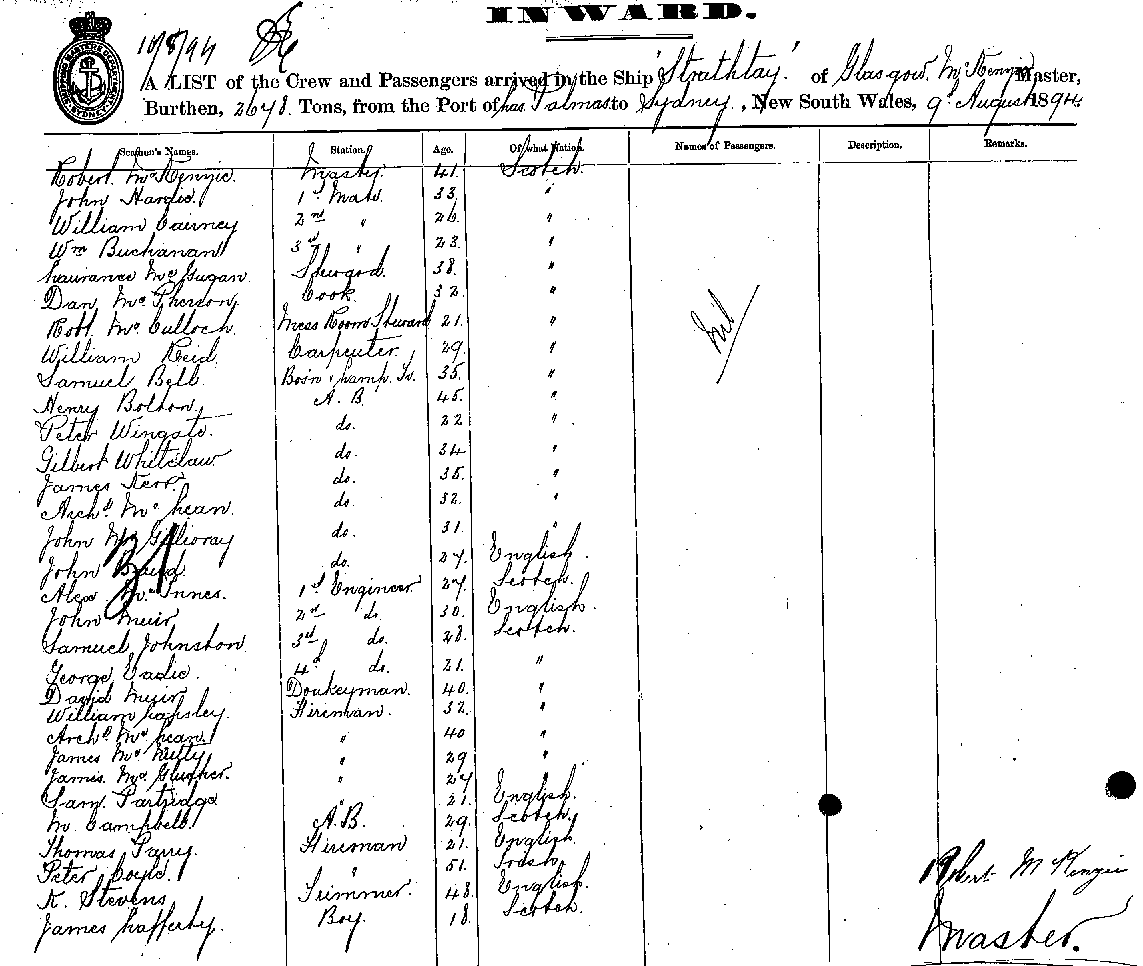 INWARD.
10/8/94
A LIST of the Crew and Passengers arrived in the Ship "Strathtay" of Glasgow. McKenzie Master,
Burthen, 2648. Tons, from the Port of Las Palmas to Sydney, New South Wales, 9th August 1894
Seamen's Names. Station. Age. Of what Nation. Names of Passengers. Description. Remarks.
Robert McKenzie. Master. 41. Scotch.
John Hardie. 1st Mate. 33. "
William Cairney 2nd " 26. "
Wm Buchanan 3rd " 23. "
Laurance McGugan. Steward. 38. "
Dan McPherson, Cook. 32 "
Robt. McCulloch. Mess Room Steward 21. "
Nil
William Reid. Carpenter. 29. "
Samuel Bell. Bosn & Lamp. Tr. 35. "
Henry Bolton, A. B. 45. "
Peter Wingate. do. 22 "
Gilbert Whitelaw. do. 34 "
James Kerr. do. 35. "
Archd. McLean. do. 32. "
John McGillivray do. 31. "
31
John Baird. do. 27. English.
Alex McInnes. 1st Engineer 27. Scotch.
John Muir 2nd do. 30. English.
Samuel Johnston. 3rd do. 28. Scotch.
George Eadie. 4th do. 21. "
David Muir Donkeyman. 40. "
William Lapsley. Fireman. 32. "
Archd. McLean. " 40 "
James McNulty " 29 "
James. " 27 "
Sam. Partridge " 21. English.
M. Campbell. A.B. 29. Scotch.
Thomas Parry. Fireman 21. English.
Peter Coyle. " 51. Irish.
K. Stevens Trimmer. 48. English.
James Lafferty. Boy. 18. Scotch.
Robert McKenzie
Master.